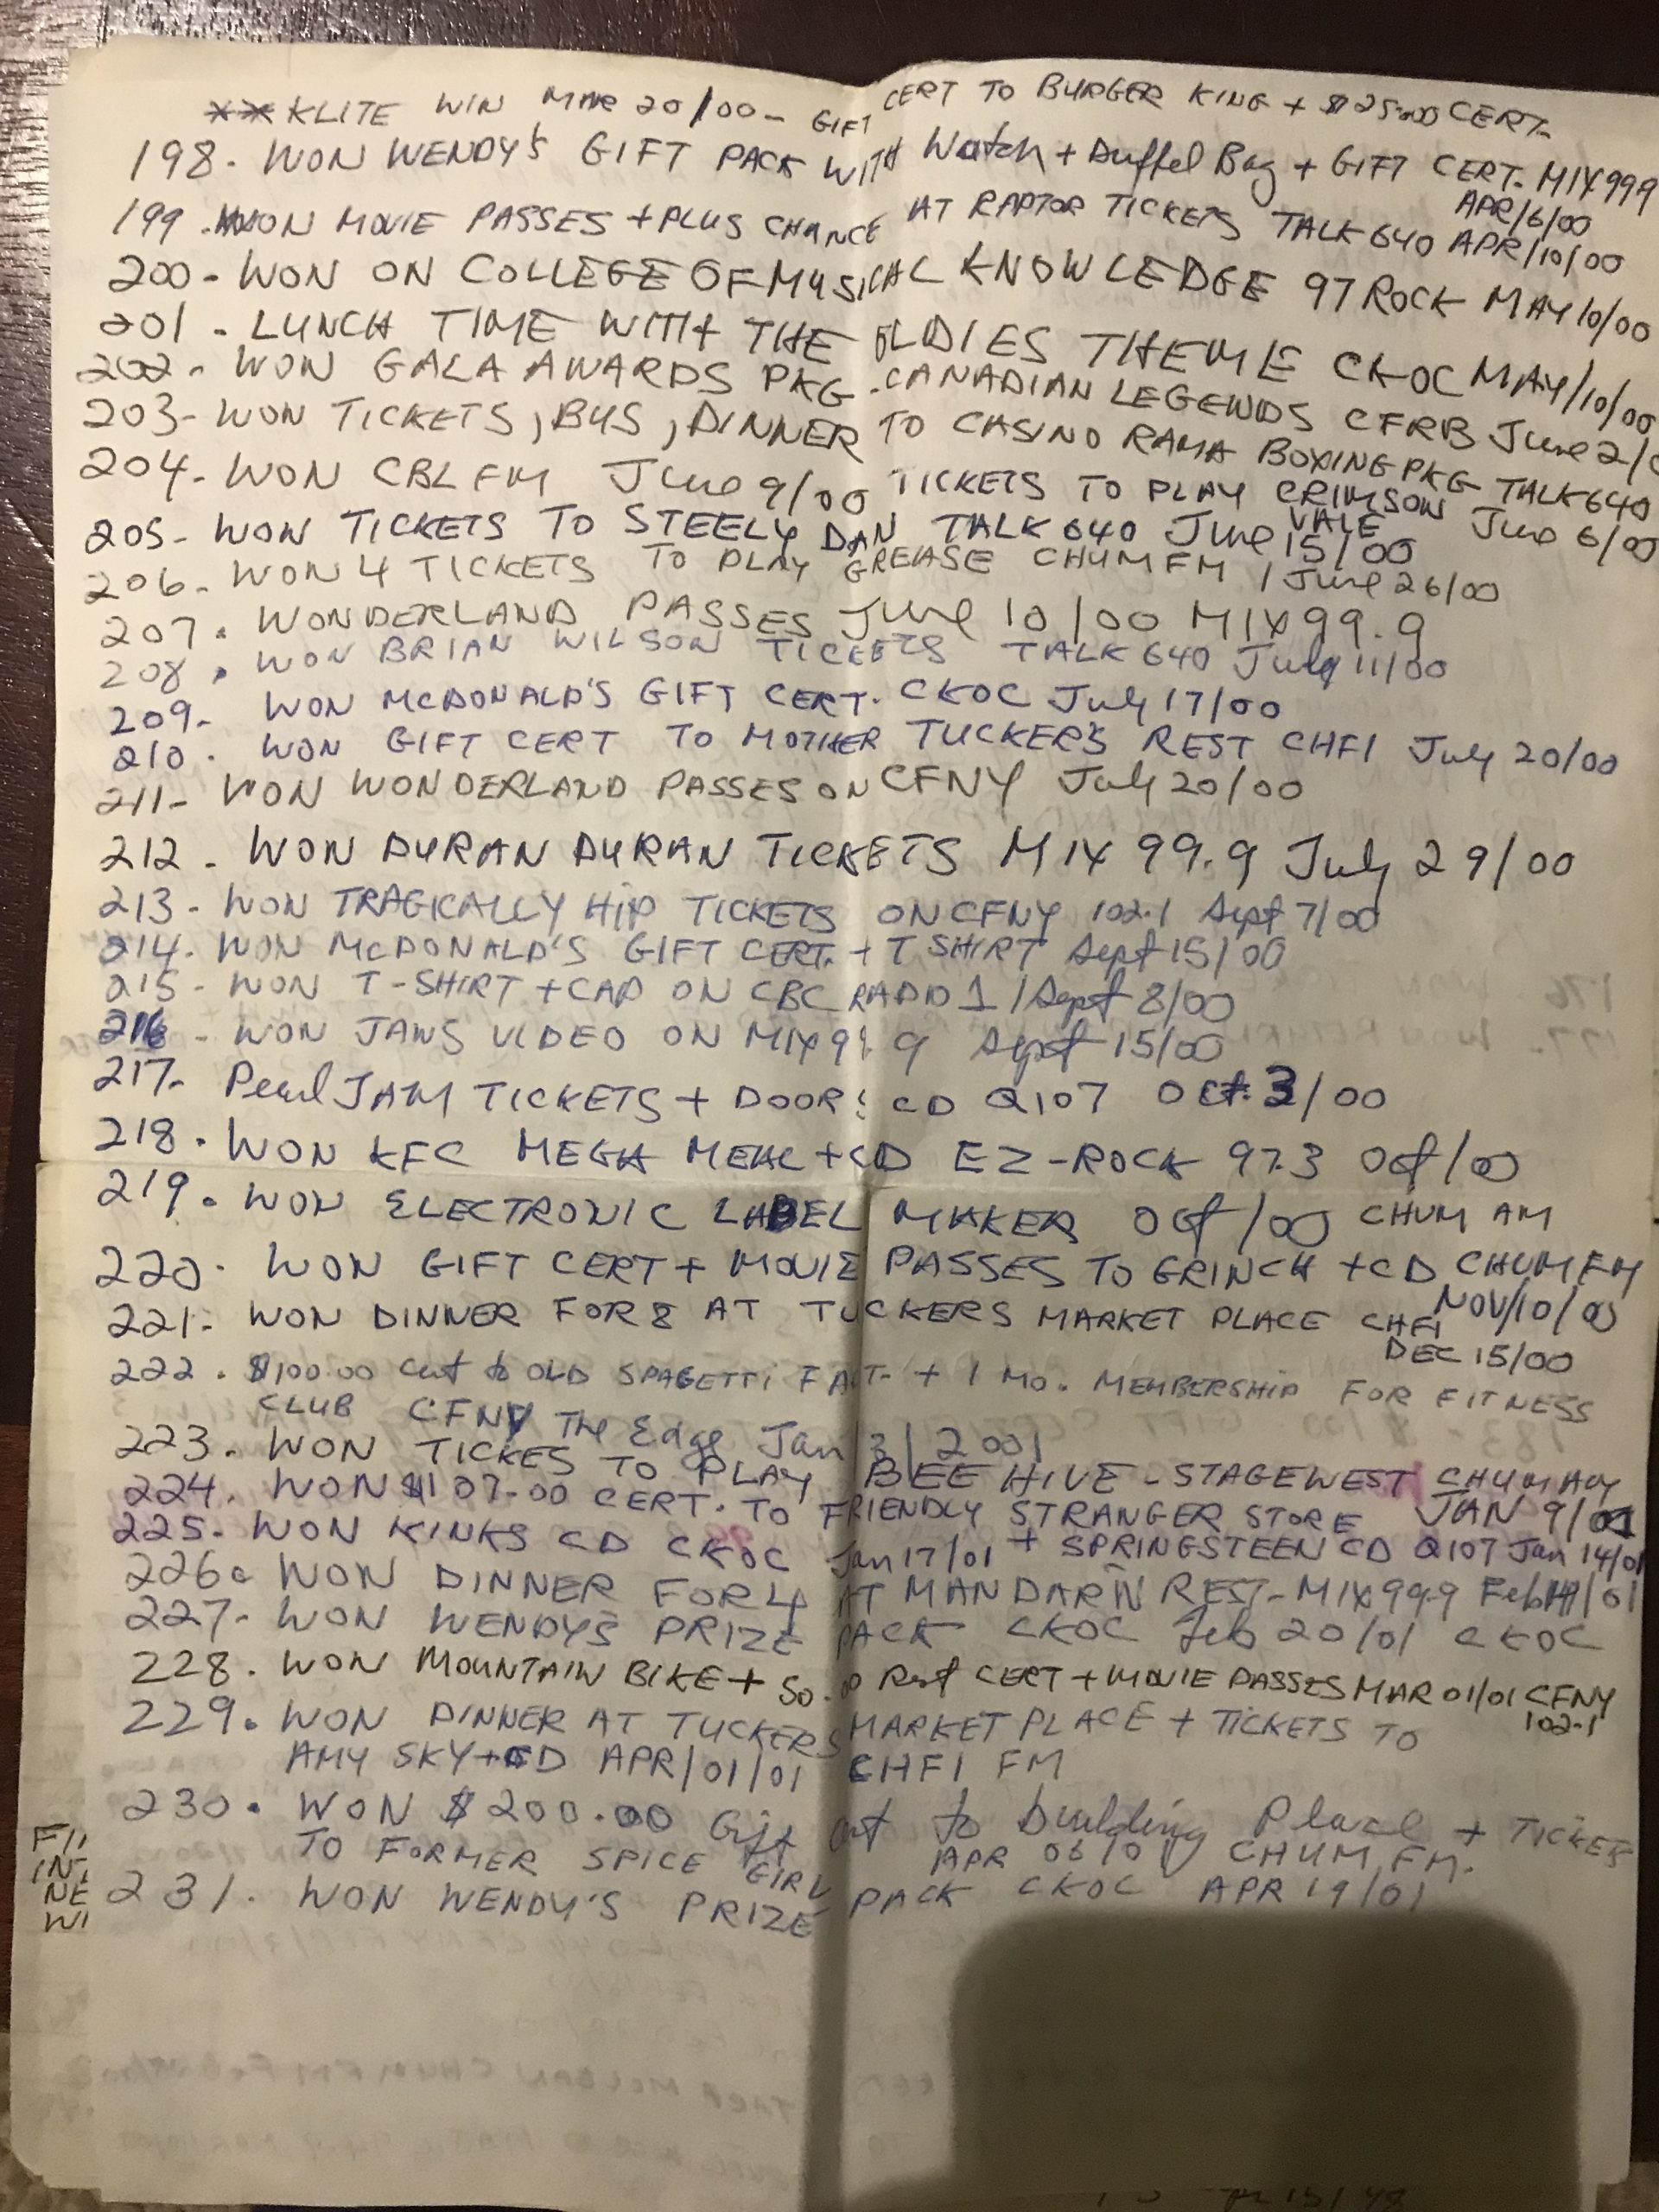 ** KLITE WIN MAR 20/00 - GIFT CERT TO BURGER KING + $25.00 CERT.
198. WON WENDY'S GIFT PACK WITH Watch + Duffel Bag + GIFT CERT. MIX 999
APR/6/00
199. WON MOVIE PASSES + PLUS CHANCE AT RAPTOR TICKETS TALK 640 APR/10/00
200- WON ON COLLEGE OF MUSICAL KNOWLEDGE 97 ROCK MAY 10/00
201. LUNCH TIME WITH THE OLDIES THEME CKOC MAY/10/00
202. WON GALA AWARDS PKG. CANADIAN LEGENDS CFRB June 2/
203- WON TICKETS, BUS, DINNER TO CASINO RAMA BOXING PKG TALK 640
June 6/00
204- WON CBL FM June 9/00 TICKETS TO PLAY CRIMSON
VALE
205- WON TICKETS TO STEELY DAN TALK 640 June 15/00
206- WON 4 TICKETS TO PLAY GREASE CHUM FM / June 26/00
207. WONDERLAND PASSES June 10/00 MIX 99.9
208. WON BRIAN WILSON TICKETS TALK 640 July 11/00
209- WON MCDONALD'S GIFT CERT. CKOC July 17/00
210. WON GIFT CERT TO MOTHER TUCKER'S REST CHFI July 20/00
211- WON WONDERLAND PASSES ON CFNY July 20/00
212. WON DURAN DURAN TICKETS MIX 99.9 July 29/00
213- WON TRAGICALLY HIP TICKETS ON CFNY 102.1 Sept 7/00
214. WON McDONALD'S GIFT CERT. + T SHIRT Sept 15/00
215- WON T-SHIRT + CAP ON CBC RADIO 1 / Sept 8/00
216- WON JAWS VIDEO ON MIX 99.9 Sept 15/00
217- Pearl JAM TICKETS + DOORS CD Q107 Oct. 3/00
218. WON KFC MEGA MEAL + CD EZ-ROCK 97.3 Oct/00
219. WON ELECTRONIC LABEL MAKER Oct/00 CHUM AM
220. WON GIFT CERT + MOVIE PASSES TO GRINCH + CD CHUM FM
NOV/10/00
221. WON DINNER FOR 8 AT TUCKERS MARKET PLACE CHFI
DEC 15/00
222. $100.00 Cert to OLD SPAGETTI FACT. + 1 MO. MEMBERSHIP FOR FITNESS
CLUB CFNY The Edge Jan/3/2001
223. WON TICKES TO PLAY BEE HIVE - STAGEWEST CHUM AM
JAN 9/01
224. WON $107.00 CERT. TO FRIENDLY STRANGER STORE
225- WON KINKS CD CKOC Jan 17/01 + SPRINGSTEEN CD Q107 Jan 14/01
226. WON DINNER FOR 4 AT MANDARIN REST- MIX 99.9 Feb /01
227- WON WENDY'S PRIZE PACK CKOC Feb 20/01 CKOC
228. WON MOUNTAIN BIKE + 50.00 Rest CERT + MOVIE PASSES MAR 01/01 CFNY
102.1
229. WON DINNER AT TUCKERS MARKET PLACE + TICKETS TO
AMY SKY + CD APR/01/01 CHFI FM
230. WON $200.00 Gift Cert to building Place + TICKETS
TO FORMER SPICE GIRL APR 06/01 CHUM FM.
231. WON WENDY'S PRIZE PACK CKOC APR 19/01